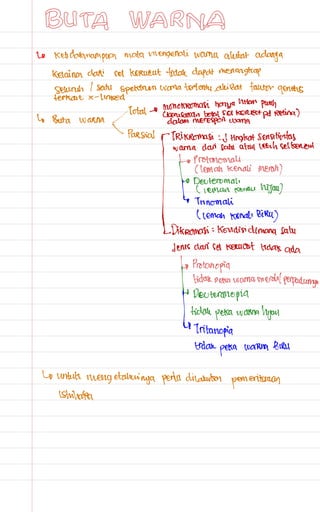 BUTA WARNA
Ketidakmampuan mata mengenali warna akibat adanya
Kelainan dari sel kerucut tidak dapat menangkap
seluruh / satu spektrum warna tertentu akibat faktor genetis
terkait x-linked
Buta warna
Total → monokromasi hanya hitam putih
(kerusakan total sel kerucut pd retina)
dalam merespon warna
Parsial
Trikromasi : ↓ tingkat sensitivitas
warna dari satu atau lebih sel kerucut
→ Protanomali
(lemah kenali merah)
→ Deuteromali
(lemah kenali hijau)
→ Trinomali
(lemah kenali Biru)
Dikromasi : Kondisi dimana satu
Jenis dari sel kerucut tidak ada
→ Protanopia
tidak peka warna merah/
→ Deuteranopia
tidak peka warna hijau
→ Tritanopia
tidak peka warna Biru
untuk mengetahuinya perlu dilakukan pemeriksaan
ishihara